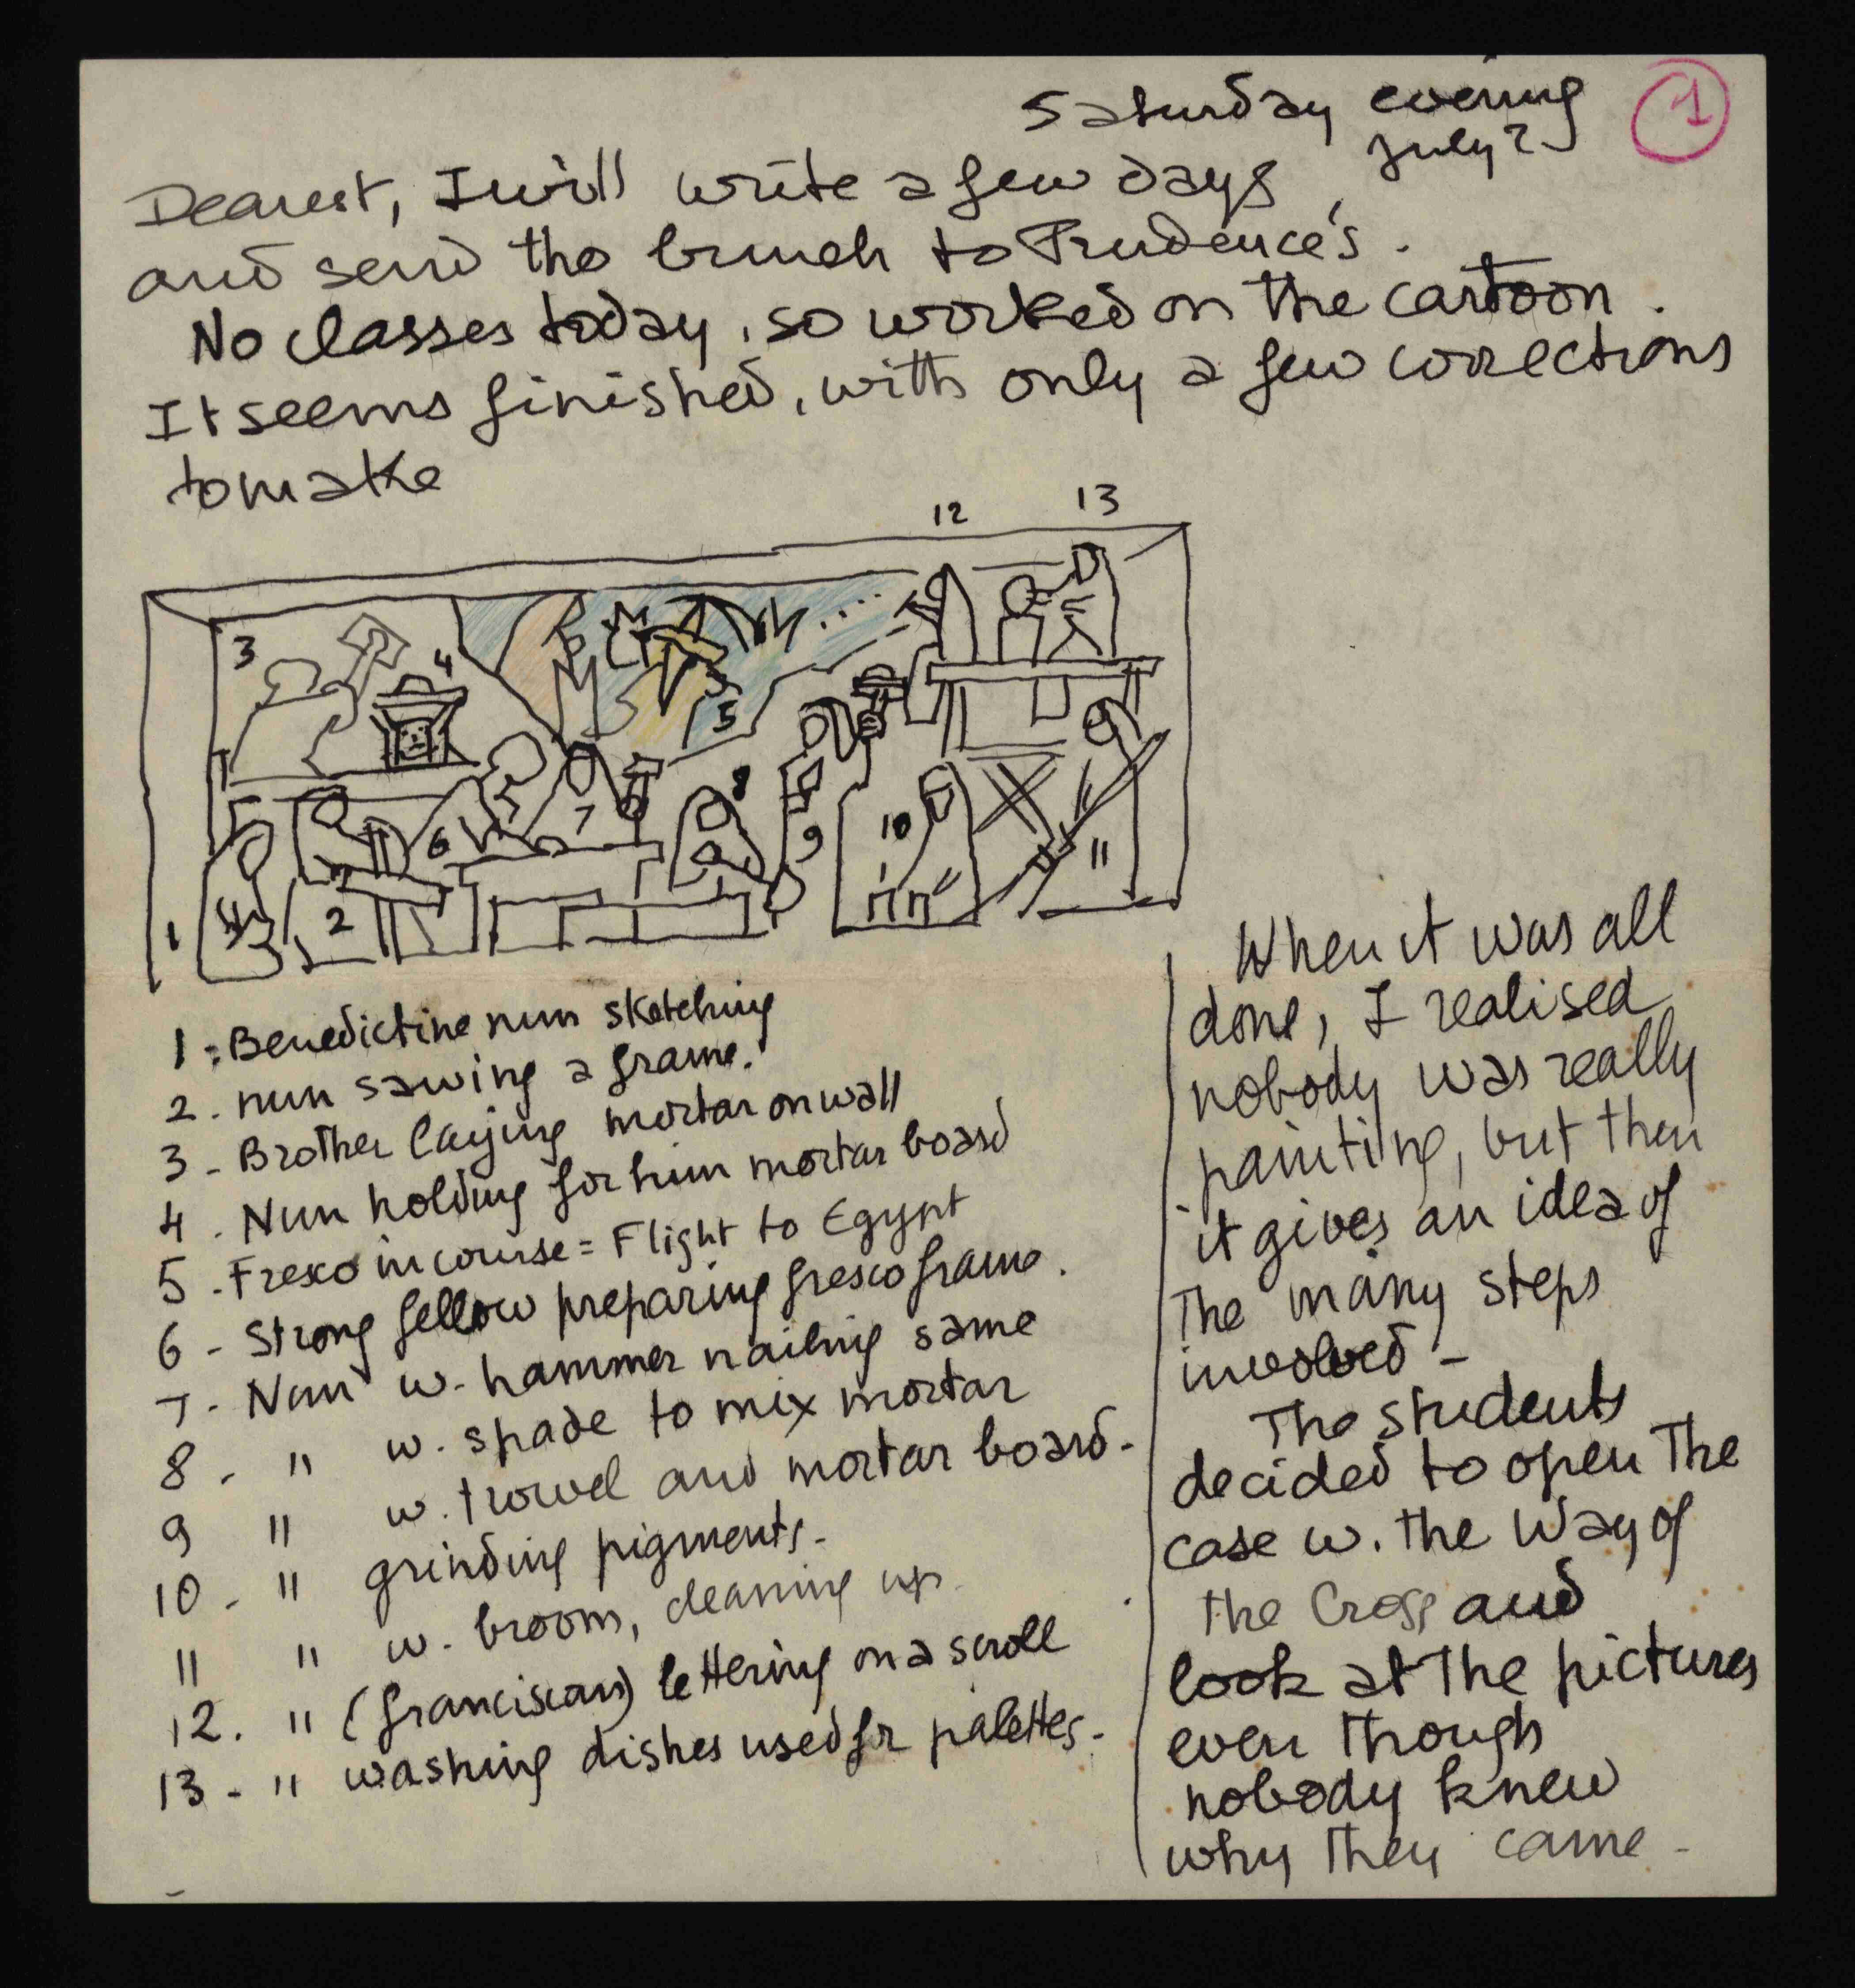 Saturday evening
July 2
1
Dearest, I will write a few days,
and send the bunch to Prudence's.
No classes today, so worked on the cartoon.
It seems finished, with only a few corrections
to make
12
13
3
4
5
6
7
8
9
10
11
1
2
1: Benedictine nun sketching
2. nun sawing a frame.
3 - Brother laying mortar on wall
4. Nun holding for him mortar board
5. Fresco in course = Flight to Egypt
6 - Strong fellow preparing fresco frame.
7. Nun w. hammer nailing same
8. " w. spade to mix mortar
9 " w. trowel and mortar board-
10 - " grinding pigments.
11 " w. broom, cleaning up
12. " (franciscan) lettering on a scroll
13 - " washing dishes used for palettes-
When it was all
done, I realised
nobody was really
painting, but then
it gives an idea of
the many steps
involved -
The students
decided to open the
case w. the Way of
the Cross and
look at the pictures
even though
nobody knew
why they came -